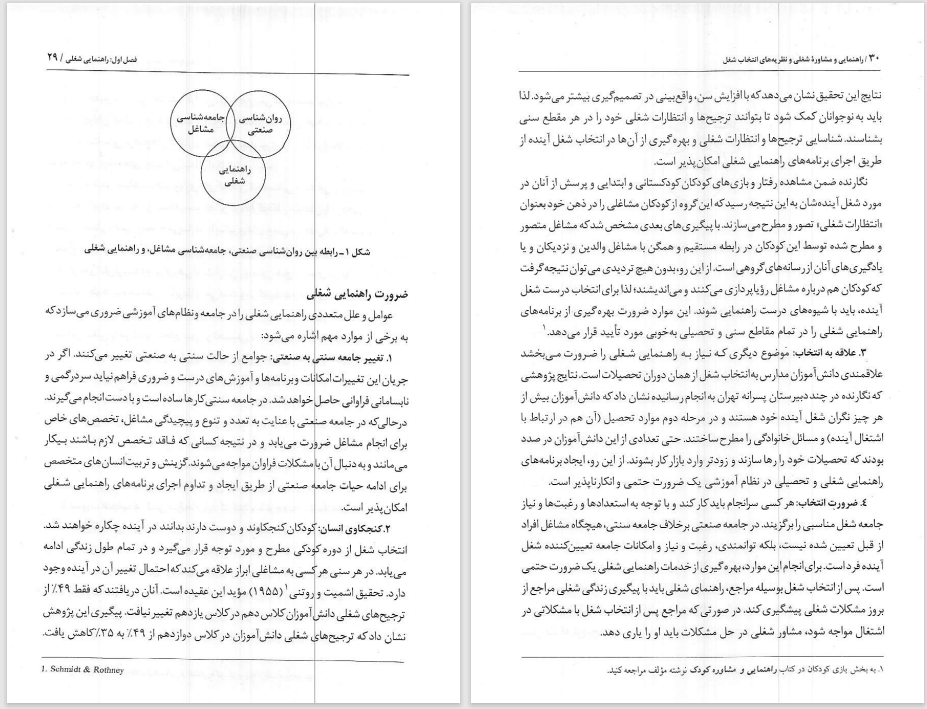 فصل اول: راهنمایی شغلی / ۲۹
جامعه‌شناسی
مشاغل
روان‌شناسی
صنعتی
راهنمایی
شغلی
شکل ۱ـ رابطه بین روان‌شناسی صنعتی، جامعه‌شناسی مشاغل، و راهنمایی شغلی
ضرورت راهنمایی شغلی
عوامل و علل متعددی راهنمایی شغلی را در جامعه و نظام‌های آموزشی ضروری می‌سازد که
به برخی از موارد مهم اشاره می‌شود:
۱. تغییر جامعه سنتی به صنعتی: جوامع از حالت سنتی به صنعتی تغییر می‌کنند. اگر در
جریان این تغییرات امکانات و برنامه‌ها و آموزش‌های درست و ضروری فراهم نیاید سردرگمی و
نابسامانی فراوانی حاصل خواهد شد. در جامعه سنتی کارها ساده است و با دست انجام می‌گیرند.
درحالی‌که در جامعه صنعتی با عنایت به تعدد و تنوع و پیچیدگی مشاغل، تخصص‌های خاص
برای انجام مشاغل ضرورت می‌یابد و در نتیجه کسانی که فاقد تخصص لازم باشند بیکار
می‌مانند و به دنبال آن با مشکلات فراوان مواجه می‌شوند. گزینش و تربیت انسان‌های متخصص
برای ادامه حیات جامعه صنعتی از طریق ایجاد و تداوم اجرای برنامه‌های راهنمایی شغلی
امکان‌پذیر است.
۲. کنجکاوی انسان: کودکان کنجکاوند و دوست دارند بدانند در آینده چکاره خواهند شد.
انتخاب شغل از دوره کودکی مطرح و مورد توجه قرار می‌گیرد و در تمام طول زندگی ادامه
می‌یابد. در هر سنی هر کسی به مشاغلی ابراز علاقه می‌کند که احتمال تغییر آن در آینده وجود
دارد. تحقیق اشمیت و روتنی۱ (۱۹۵۵) مؤید این عقیده است. آنان دریافتند که فقط ۴۹٪ از
ترجیح‌های شغلی دانش‌آموزان کلاس دهم در کلاس یازدهم تغییر نیافت. پیگیری این پژوهش
نشان داد که ترجیح‌های شغلی دانش‌آموزان در کلاس دوازدهم از ۴۹٪ به ۳۵٪ کاهش یافت.
1. Schmidt & Rothney
۳۰ / راهنمایی و مشاورهٔ شغلی و نظریه‌های انتخاب شغل
نتایج این تحقیق نشان می‌دهد که با افزایش سن، واقع‌بینی در تصمیم‌گیری بیشتر می‌شود. لذا
باید به نوجوانان کمک شود تا بتوانند ترجیح‌ها و انتظارات شغلی خود را در هر مقطع سنی
بشناسند. شناسایی ترجیح‌ها و انتظارات شغلی و بهره‌گیری از آن‌ها در انتخاب شغل آینده از
طریق اجرای برنامه‌های راهنمایی شغلی امکان‌پذیر است.
نگارنده ضمن مشاهده رفتار و بازی‌های کودکان کودکستانی و ابتدایی و پرسش از آنان در
مورد شغل آینده‌شان به این نتیجه رسید که این گروه از کودکان مشاغلی را در ذهن خود بعنوان
«انتظارات شغلی» تصور و مطرح می‌سازند. با پیگیری‌های بعدی مشخص شد که مشاغل متصور
و مطرح شده توسط این کودکان در رابطه مستقیم و همگن با مشاغل والدین و نزدیکان و یا
یادگیری‌های آنان از رسانه‌های گروهی است. از این رو، بدون هیچ تردیدی می‌توان نتیجه گرفت
که کودکان هم درباره مشاغل رؤیاپردازی می‌کنند و می‌اندیشند؛ لذا برای انتخاب درست شغل
آینده، باید با شیوه‌های درست راهنمایی شوند. این موارد ضرورت بهره‌گیری از برنامه‌های
راهنمایی شغلی را در تمام مقاطع سنی و تحصیلی به‌خوبی مورد تأیید قرار می‌دهد.۱
۳. علاقه به انتخاب: موضوع دیگری که نیاز به راهنمایی شغلی را ضرورت می‌بخشد
علاقمندی دانش‌آموزان مدارس به انتخاب شغل از همان دوران تحصیلات است. نتایج پژوهشی
که نگارنده در چند دبیرستان پسرانه تهران به انجام رسانیده نشان داد که دانش‌آموزان بیش از
هر چیز نگران شغل آینده خود هستند و در مرحله دوم موارد تحصیل (آن هم در ارتباط با
اشتغال آینده) و مسائل خانوادگی را مطرح ساختند. حتی تعدادی از این دانش‌آموزان در صدد
بودند که تحصیلات خود را رها سازند و زودتر وارد بازار کار بشوند. از این رو، ایجاد برنامه‌های
راهنمایی شغلی و تحصیلی در نظام آموزشی یک ضرورت حتمی و انکارناپذیر است.
۴. ضرورت انتخاب: هر کسی سرانجام باید کار کند و با توجه به استعدادها و رغبت‌ها و نیاز
جامعه شغل مناسبی را برگزیند. در جامعه صنعتی برخلاف جامعه سنتی، هیچگاه مشاغل افراد
از قبل تعیین شده نیست، بلکه توانمندی، رغبت و نیاز و امکانات جامعه تعیین‌کننده شغل
آینده فرد است. برای انجام این موارد، بهره‌گیری از خدمات راهنمایی شغلی یک ضرورت حتمی
است. پس از انتخاب شغل بوسیله مراجع، راهنمای شغلی باید با پیگیری زندگی شغلی مراجع از
بروز مشکلات شغلی پیشگیری کند. در صورتی که مراجع پس از انتخاب شغل با مشکلاتی در
اشتغال مواجه شود، مشاور شغلی در حل مشکلات باید او را یاری دهد.
۱. به بخش بازی کودکان در کتاب راهنمایی و مشاوره کودک نوشته مؤلف مراجعه کنید.